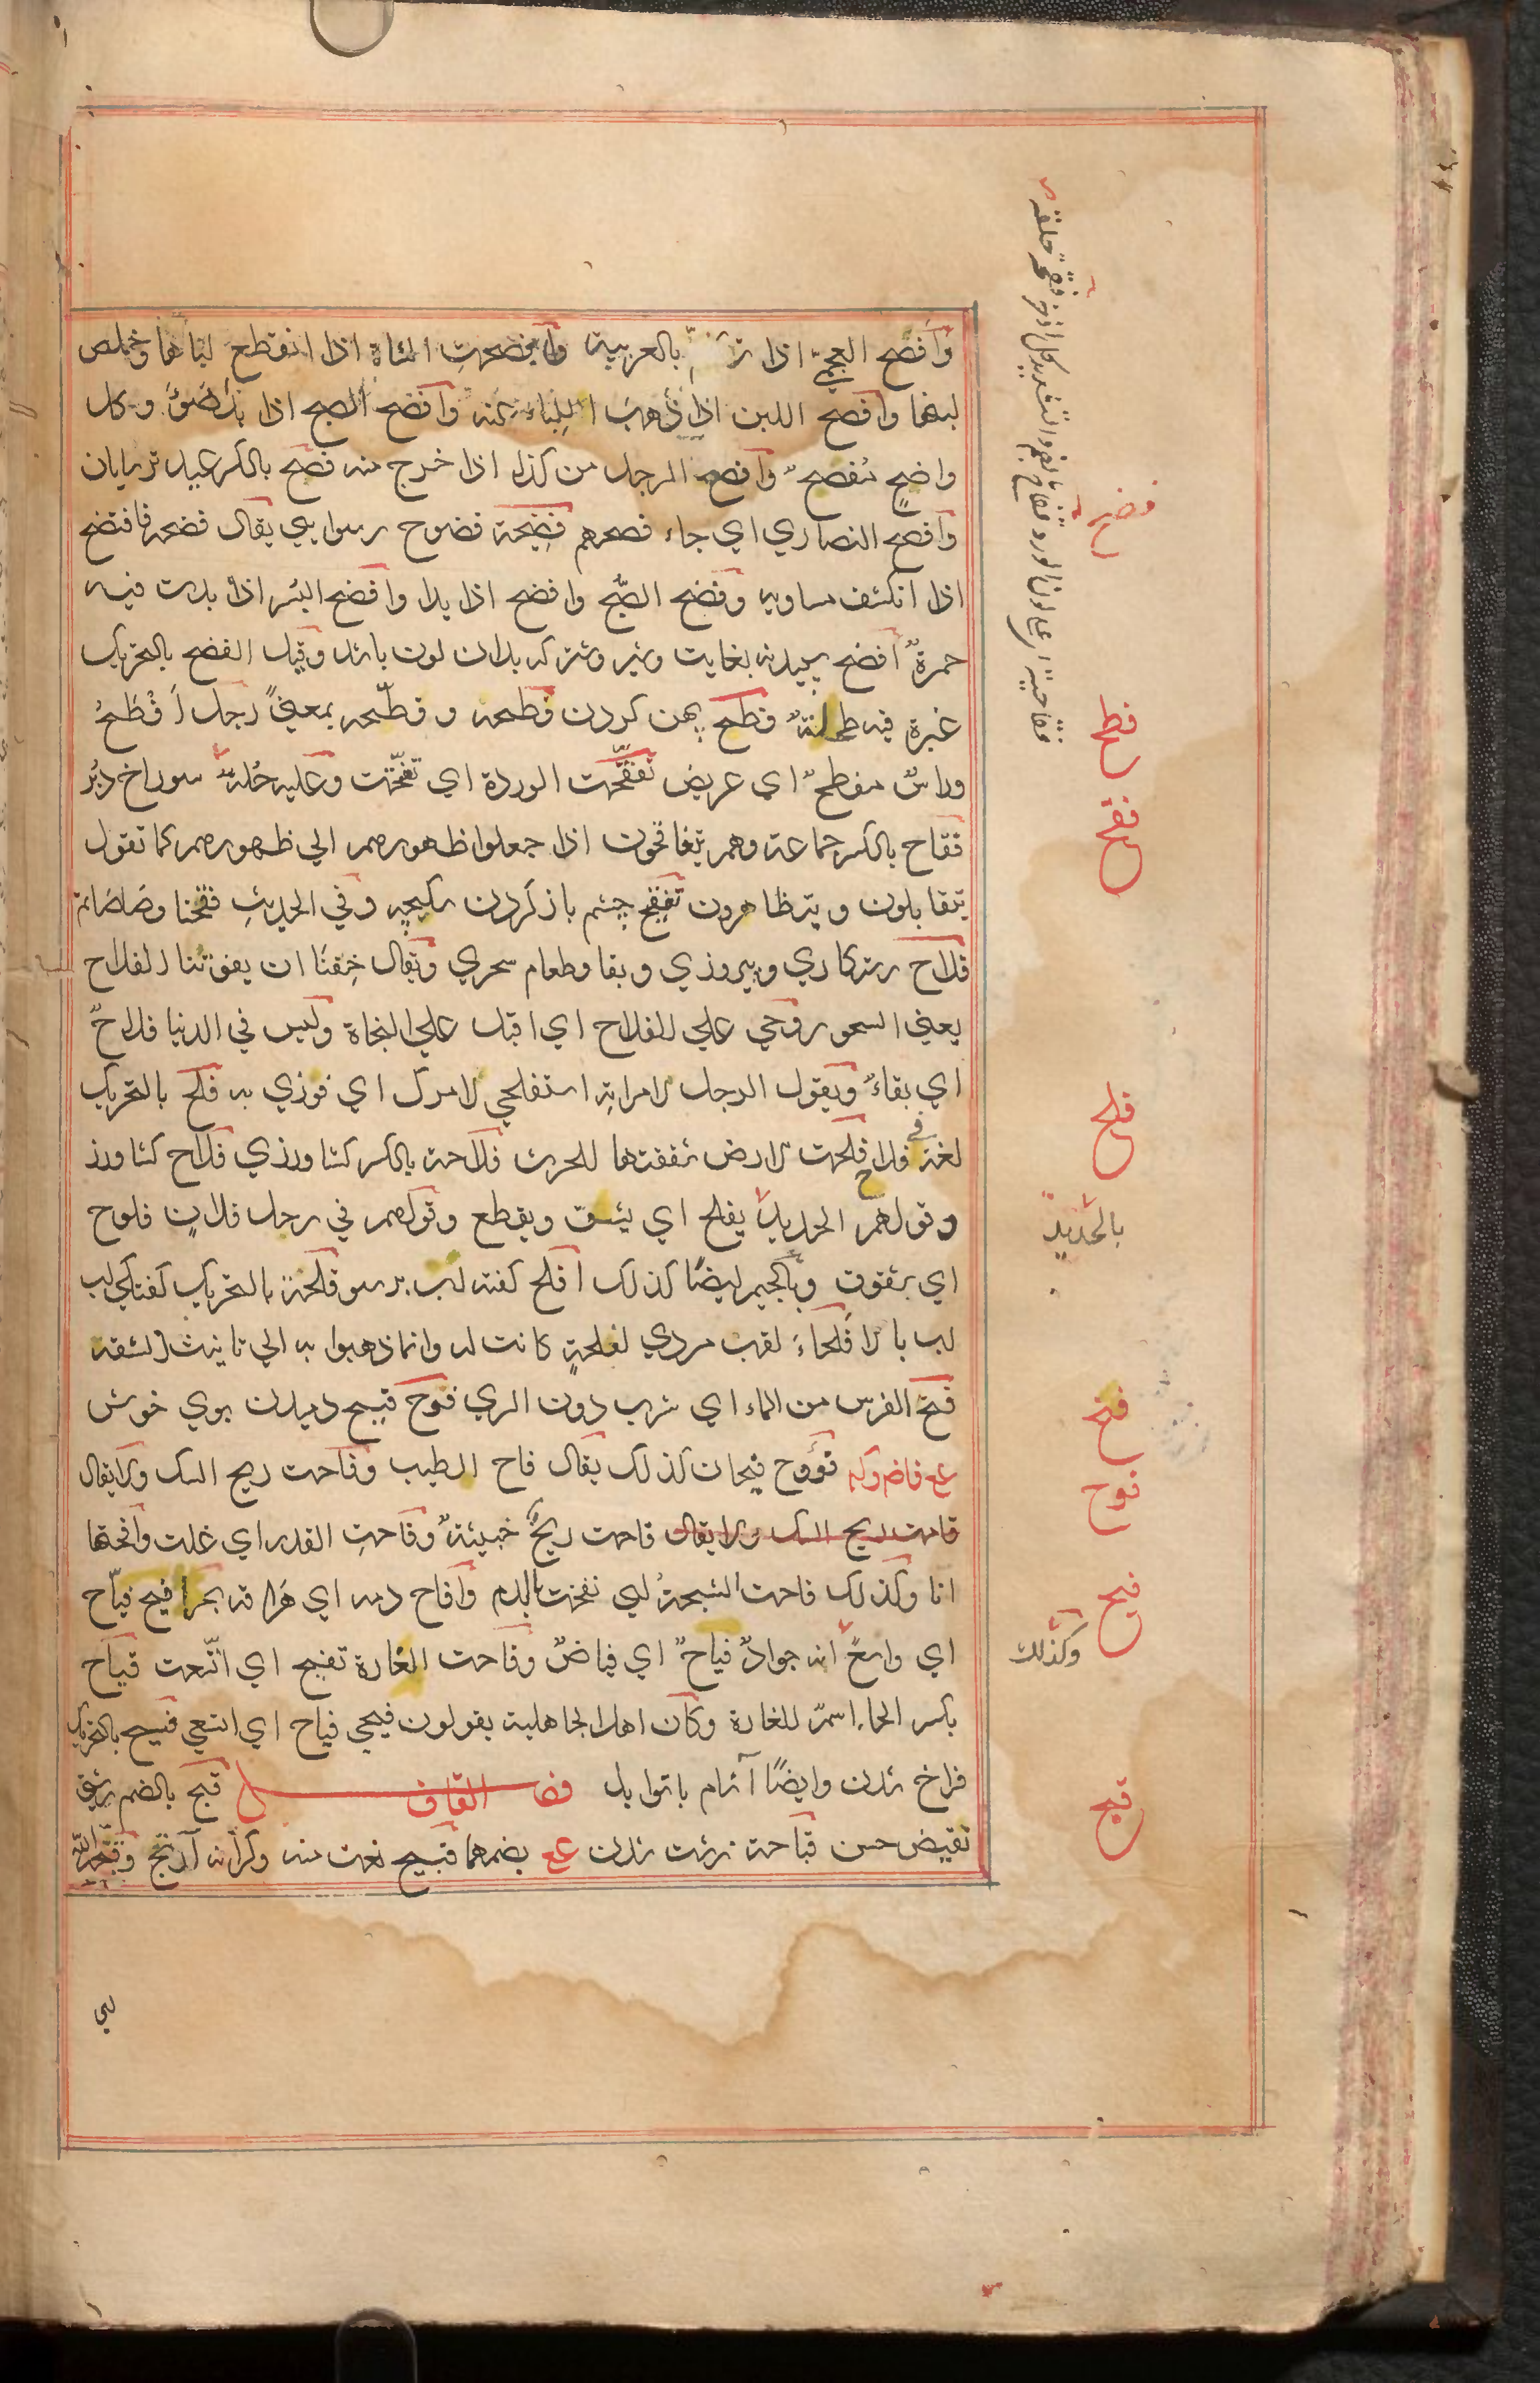 وَأفصَح العجميّ اذا بالعربية وافصحتِ الشاة اذا انقطع لباءها وخلص
لبنها وافصح اللبن اذا ذهب اللِباء عنه وافصح الصبح اذا بدا ضوءُ وكل
واضحٍ مُفصحٌ وافصح الرجل من كذا اذا خرج منه فصح بالكسر عيد ترسايان
وافصح النصاري اي جاء فصحهم فضيحة فضوح رسوايي يقال فضحه فافتضح
اذا انكشف مساويه وفضح الصّبح وافضح اذا بدا وافضح البُسر اذا بدت فيه
حمرةٌ افضح سپيد نه بغايت وشير وشتر كه بدان لون باشد وقيل الفضح بالتحريك
غبرة فيه طحلةٌ فطح پهن كردن فطحه و فطّحه بمعنيً رجل اَفْطَحُ
وراسٌ مفطحٌ اي عريض تفقّحت الوردة اي تفتّحت وعليه حُلةٌ سوراخ دبُر
فقاح بالكسر جماعة وهم يتفاقحون اذا جعلوا ظهورهم الي ظهورهم كما تقول
يتقابلون ويتظاهرون تفقيح چشم باز كردن سكبچه وفي الحديث فقحنا وصَاصَاتم
فلاح رستكاري وپيروزي وبقا وطعام سحري ويقال خِفنا ان يفوتنا الفلاح
يعني السحور وحي علي الفلاح اي اقبل علي النجاة وليس في الدنيا فلاحٌ
اي بقاءٌ ويقول الرجل لامراتِه استفلحي لامرك اي فوزي به فلح بالتحريك
لغة في فلاح فلحت الارض شققتها للحرث فلاحة بالكسر كشاورزي فلاح كشاورز
وقولهم الحديد يفلح اي يشق ويقطع وقولهم في رجل فلانٍ فلوح
اي شقوق وبالجيم ايضًا كذلك افلح كفته لب زبرسو فلحة بالتحريك كفتكي لب
لب بالا فلحاء لقب مردي لفلحةٍ كانت له وانما ذهبوا به الي تانيث الشفة
فتح الفرس من الماء اي شرب دون الري فوح فيح دميدن بوي خوش
ع فاض وكه فؤوح فيحان كذلك يقال فاح الطيب وفاحت ريح المسك ولايقال
فاحت ريح المسك ولا يقال فاحت ريحٌ خبيثةٌ وفاحتِ القدر اي غلت وافحتها
انا وكذلك فاحت الشجةُ اي نفحت بالدم وافاح دمه اي هراقه بحر افيح فيّاح
اي واسعٌ انه جوادٌ فياحٌ اي فياضٌ وفاحت الغارة تفيح اي اتّسعت فياح
بكسر الحاء اسمٌ للغارة وكان اهل الجاهلية يقولون فيحي فياح اي اتسعي فيح بالتحريك
فراخ شدن وايضًا آشام باتوابل فصل القاف قبح بالضم زشتي
نقيض حسن قباحة زشت شدن ع بضمهما قبيح نعت منه وكرانه آرنج وقبّحه الله
فضح
فطح
فقح
فلح
بالحديد
فتح
فوح
فيح
وكذلك
قبح